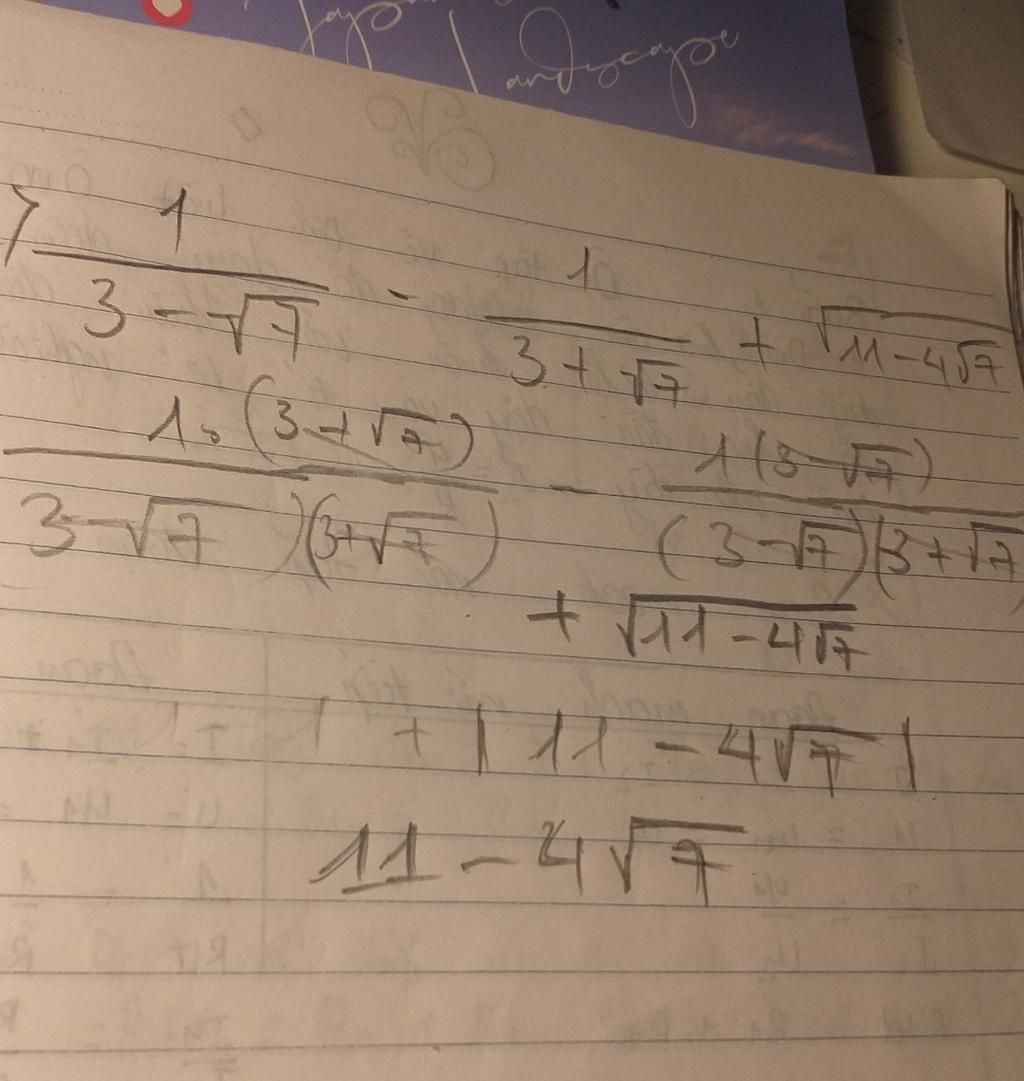 Landscape
\frac{1}{3-\sqrt{7}} - \frac{1}{3+\sqrt{7}} + \sqrt{11-4\sqrt{7}}
\frac{1.(3+\sqrt{7})}{3-\sqrt{7})(3+\sqrt{7})} - \frac{1(3-\sqrt{7})}{(3-\sqrt{7})(3+\sqrt{7})}
+ \sqrt{11-4\sqrt{7}}
+ |11-4\sqrt{7}|
11-4\sqrt{7}